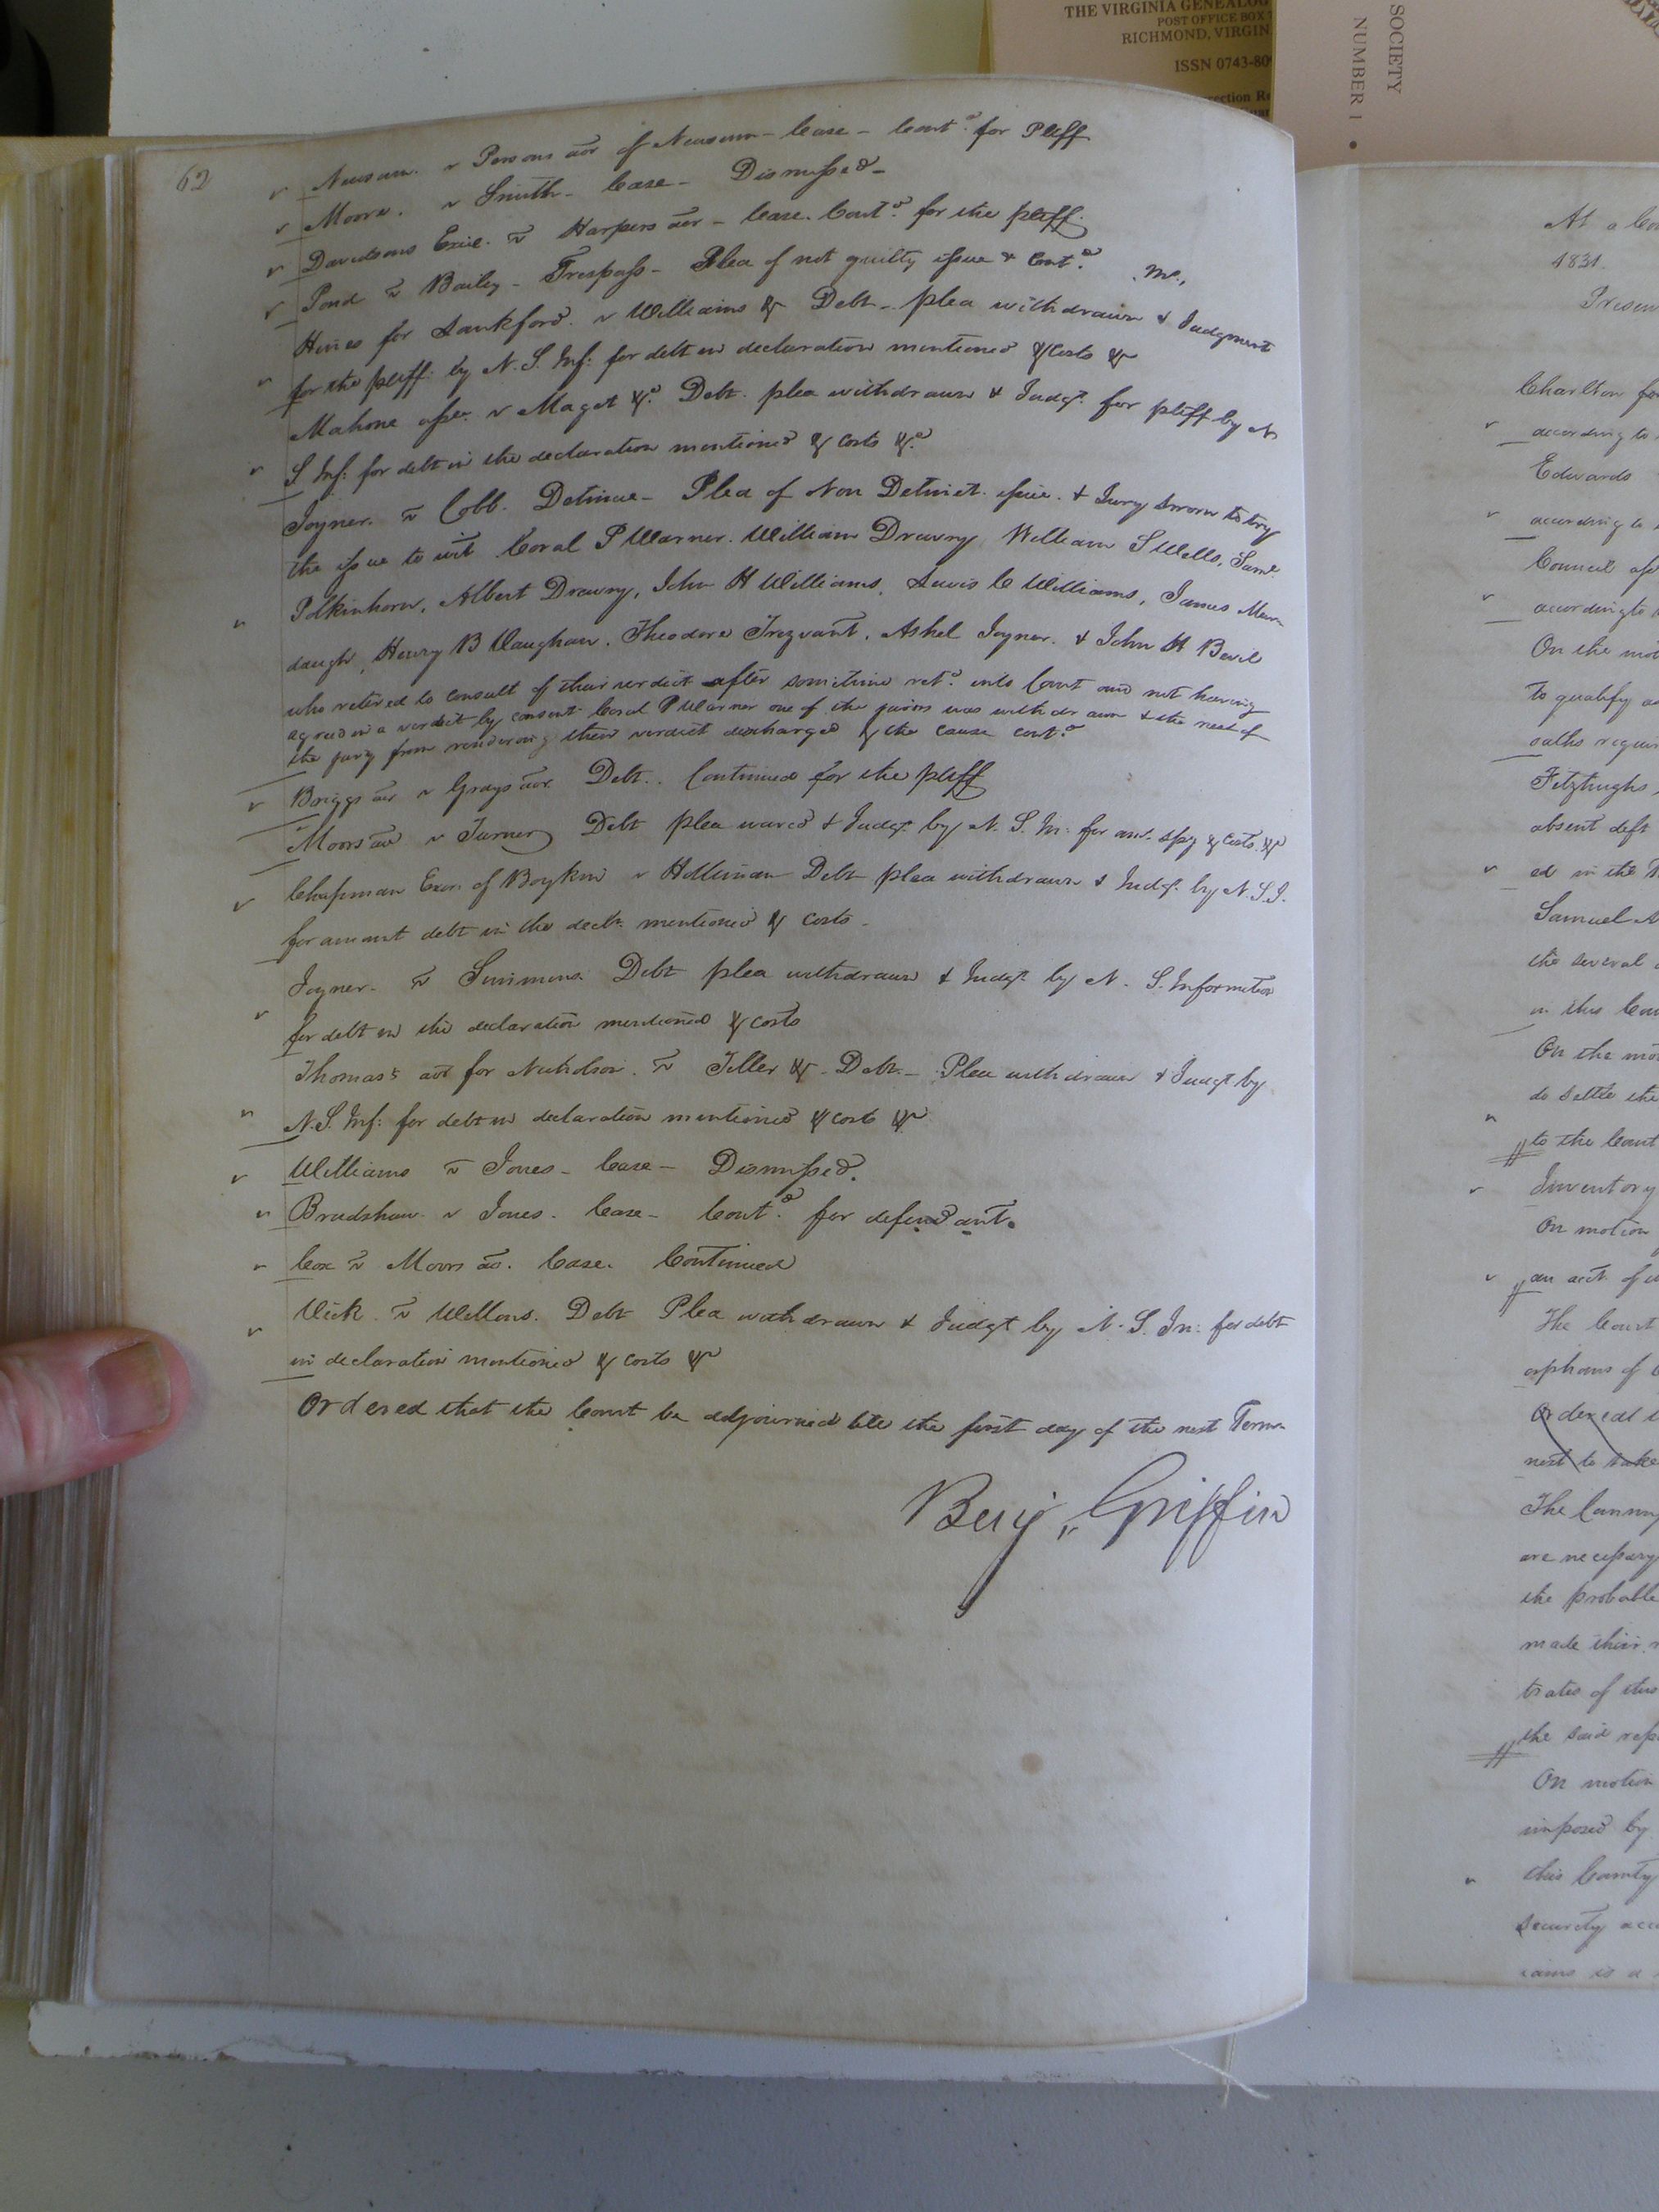 THE VIRGINIA GENEALOG
POST OFFICE BOX
RICHMOND, VIRGIN
ISSN 0743-809
ection Re
SOCIETY
NUMBER 1 •
62
Newsum. v Persons aor of Newsum - Case - Cont.d for Pliff
Moore. v Smith - Case - Dismissed -
Davidsons Exie. v Harpers aor - Case. Cont.d for the pliff.
Pond v Bailey - Trespass - Plea of not guilty issue & Cont.d
Hines for Lankford. v Williams & Debt - plea withdrawn & Judgment
for the pliff. by N. S. Inf: for debt in declaration mentioned & Costs &c
Mahone asse. v Maget &c. Debt. plea withdrawn & Judgt. for pliff by N
S Inf: for debt in the declaration mentioned & costs &c
Joyner. v Cobb. Detinue - Plea of Non Detinet. issue. & Jury sworn to try
the issue to wit Coral P Warner. William Drewry William S Wells, Saml.
Polkinhorn, Albert Drewry, John H Williams, Lewis C Williams, James Mur
daugh, Henry B Vaughan, Theodore Trezvant, Ashel Joyner. & John H Bevil
who retired to consult of their verdict after sometime retd. into Court and not having
agreed in a verdict by consent Coral P Warner one of the jurors was withdrawn & the rest of
the jury from rendering their verdict discharged & the cause cont.d
Briggs aor v Grays aor. Debt. Continued for the pliff
Moors aor v Turner Debt plea waved & Judgt. by N. S. In: for & Costs &c
Chapman Exor. of Boykin v Holliman Debt plea withdrawn & Judgt. by N.S.I.
for amount debt in the declr. mentioned & costs -
Joyner. v Simmons. Debt plea withdrawn & Judgt. by N. S. Information
for debt in the declaration mentioned & costs
Thomas's aor for Nicholson. v Teller &c - Debt - Plea withdrawn & Judgt by
N.S. Inf: for debt in declaration mentioned & costs &c
Williams v Jones - Case - Dismissed.
Bradshaw. v Jones. Case - Cont.d for defendant.
Cox v Moors ao. Case. Continued
Vick. v Wellons. Debt Plea withdrawn & Judgt by N. S. In: for debt
in declaration mentioned & costs &c
Ordered that the Court be adjourned till the first day of the next Term
Benj. Griffin
At a Co
1831.
Presen
Charlton for
according to
Edwards
according to
Council
according to
On the mot
to qualify as
oaths requir
Fitzhughs
absent deft
ed in the
Samuel
the several
in this Cou
On the mot
do settle the
to the Court
Inventory
On motion
an acct. of
The Court
orphans of
Ordered t
next to take
The Comm
are necessary
the probable
made their
trates of this
the said rep
On motion
imposed by
this County
security acc
iams is a